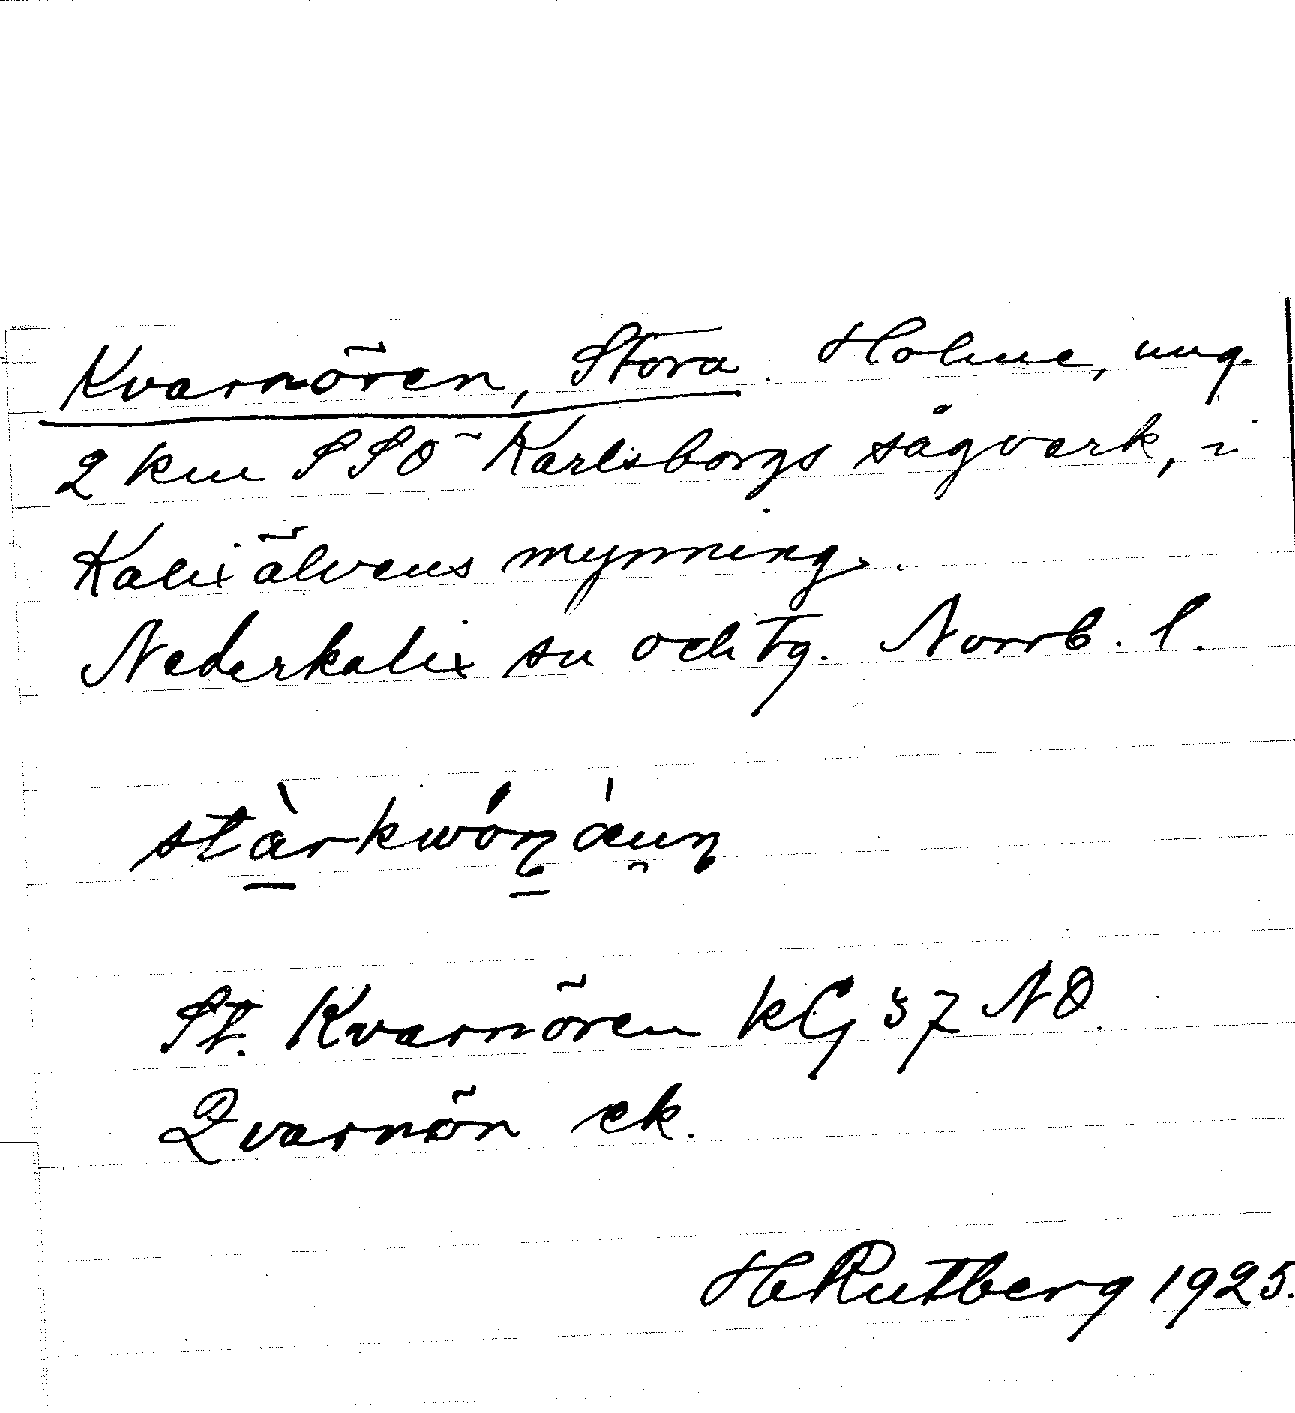 Kvarnören, Stora. Holme, ung.
2 km SSO Karlsborgs sågverk, i
Kalixälvens mynning.
Nederkalix sn och tg. Norrb. l.
stàrkwóṉ áeu̯n
St. Kvarnören kG 37 NO.
Qvarnön ek.
H Rutberg 1925.